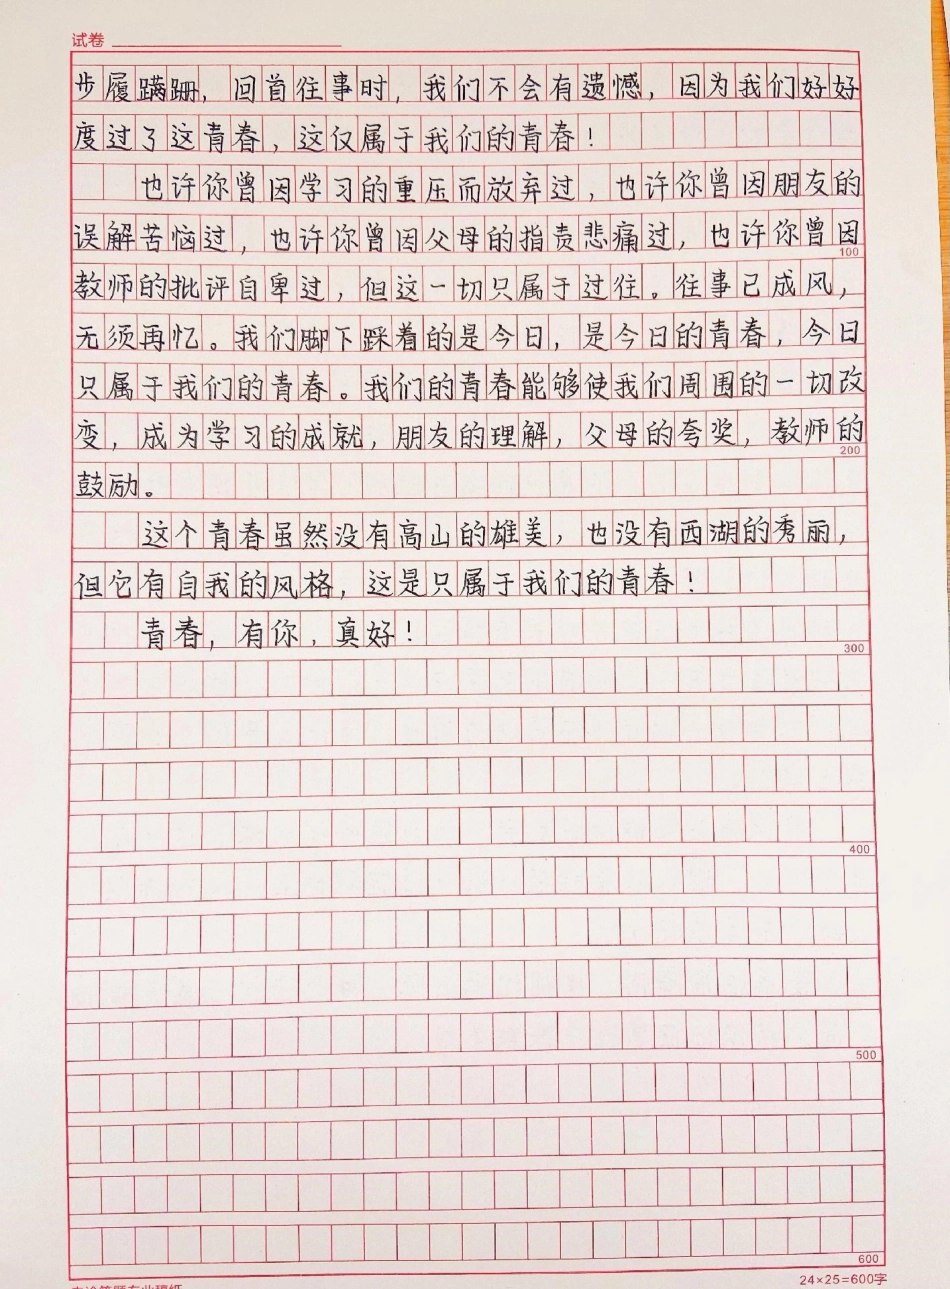 试卷
步履蹒跚，回首往事时，我们不会有遗憾，因为我们好好
度过了这青春，这仅属于我们的青春！
也许你曾因学习的重压而放弃过，也许你曾因朋友的
误解苦恼过，也许你曾因父母的指责悲痛过，也许你曾因
100
教师的批评自卑过，但这一切只属于过往。往事已成风，
无须再忆。我们脚下踩着的是今日，是今日的青春，今日
只属于我们的青春。我们的青春能够使我们周围的一切改
变，成为学习的成就，朋友的理解，父母的夸奖，教师的
200
鼓励。
这个青春虽然没有高山的雄美，也没有西湖的秀丽，
但它有自我的风格，这是只属于我们的青春！
青春，有你，真好！
300
400
500
600
24×25=600字